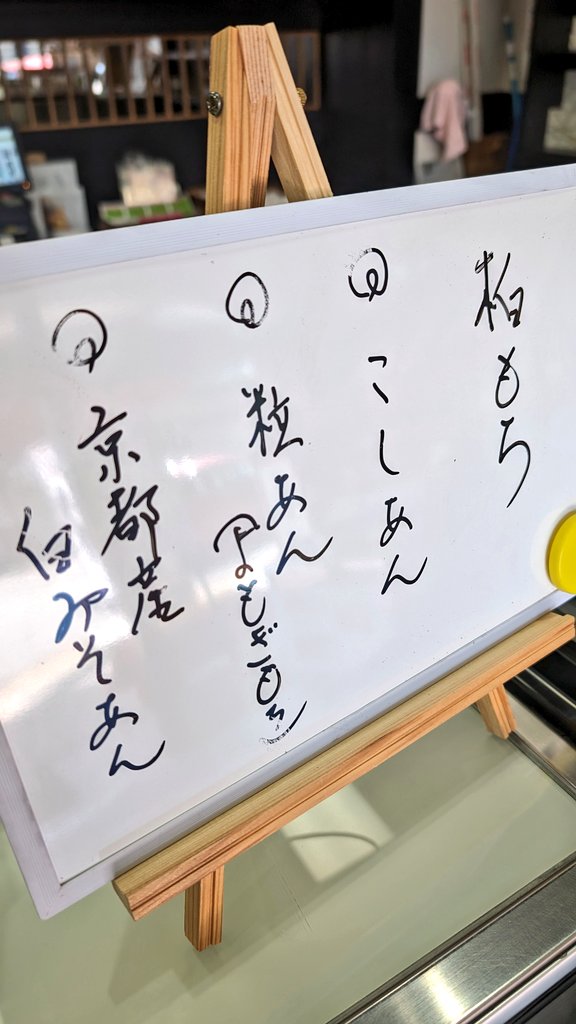 柏もち
こしあん
粒あん
(よもぎもち)
京都産
白みそあん